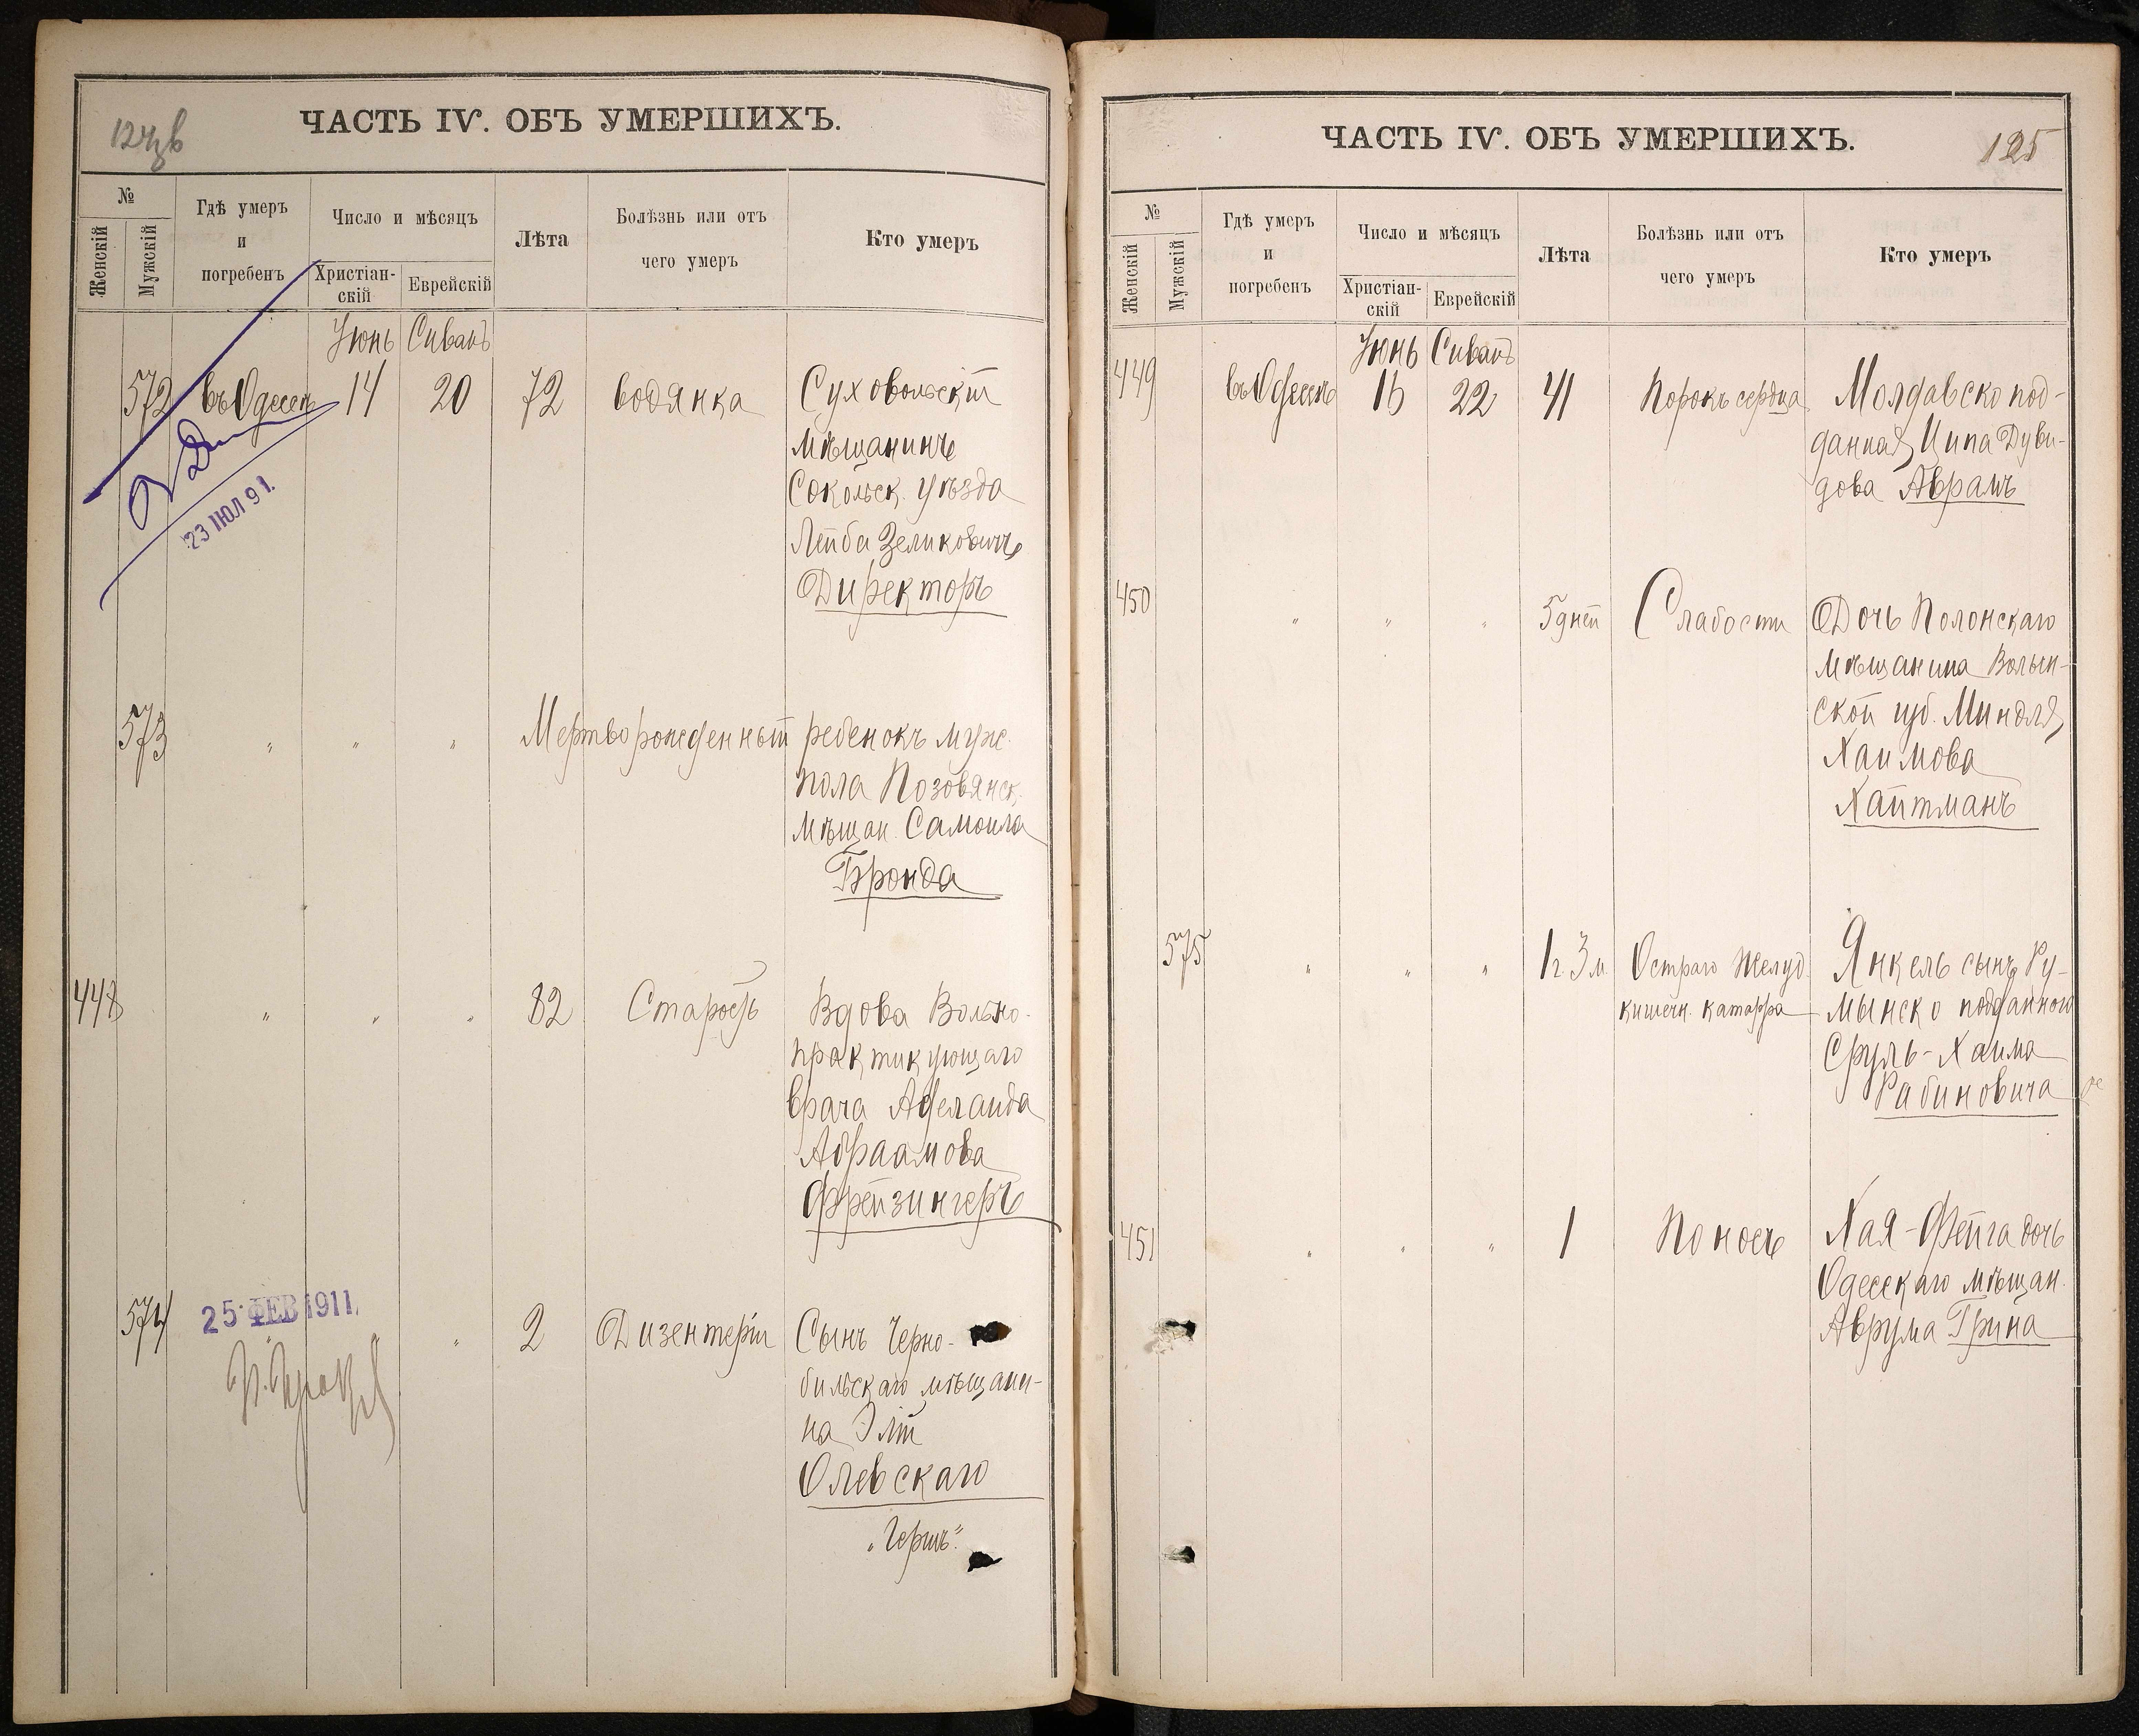 ЧАСТЬ IV. ОБЪ УМЕРШИХЪ.
№
Женскій
Мужскій
Гдѣ умеръ
и
погребенъ
Число и мѣсяцъ
Христіан-
скій
Еврейскій
Лѣта
Болѣзнь или отъ
чего умеръ
Кто умеръ
Іюнь Сиванъ
572 въ Одессѣ 14 20 72 водянка Суховольскій
мѣщанинъ
Сокольск. уѣзда
Лейба Зеликовичъ
Директоръ
23 ІЮЛ 91.
573 " " " Мертворожденный ребенокъ муж.
пола Позовянск.
мѣщан. Самоила
Бронда
448 " " " 82 Старость Вдова Вольно-
практикующаго
врача Аделаида
Абраамова
Фрейзингеръ
574 25 ФЕВ 1911. " 2 Дизентерія Сынъ Черно-
бильскаго мѣщани-
на Элій
Олевскаго
„Гершъ"
ЧАСТЬ IV. ОБЪ УМЕРШИХЪ.
125
№
Женскій
Мужскій
Гдѣ умеръ
и
погребенъ
Число и мѣсяцъ
Христіан-
скій
Еврейскій
Лѣта
Болѣзнь или отъ
чего умеръ
Кто умеръ
Іюнь Сиванъ
449 въ Одессѣ 16 22 41 Порокъ сердца Молдавско под-
данная Ципа Дуви-
дова Аврамъ
450 " " " 5 дней Слабости Дочь Полонскаго
мѣщанина Волын-
ской губ. Миндля
Хаимова
Хайтманъ
575 " " " 1 г. 3 м. Остраго желуд.
кишечн. катарра
Янкель сынъ Ру-
мынско подданного
Сруль-Хаима
Рабиновича
451 " " " 1 Поносъ Хая-Фейга дочь
Одесскаго мѣщан.
Аврума Грина